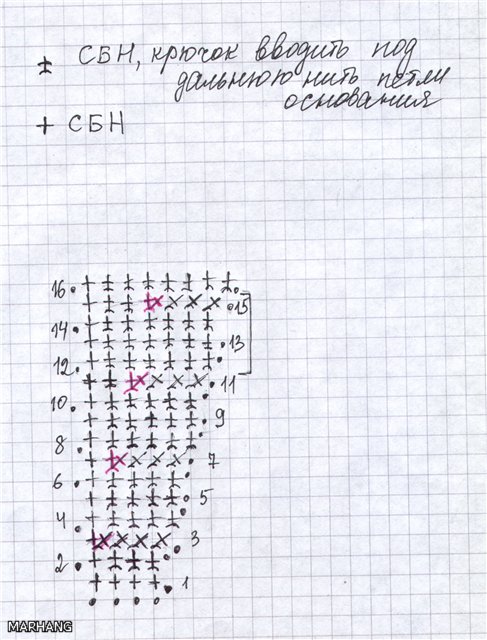 СБН, крючок вводить под
дальнюю нить петли
основания
+ СБН
16
15
14
13
12
11
10
9
8
7
6
5
4
3
2
1
MARHANG